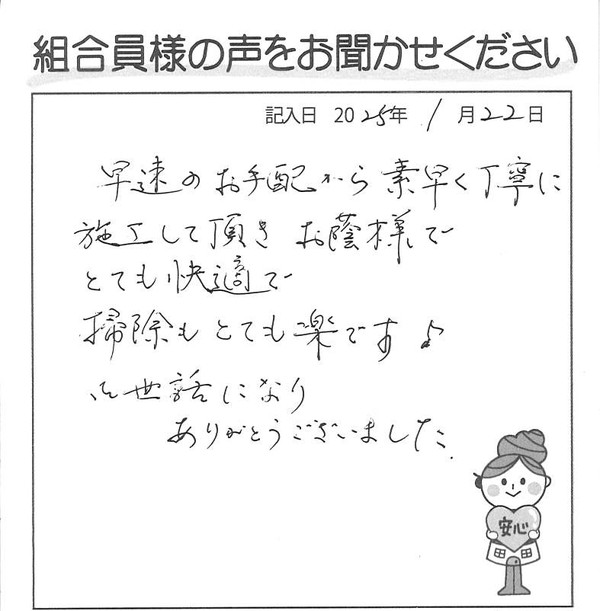 組合員様の声をお聞かせください
記入日 2025年 1月22日
早速のお手配から素早く丁寧に
施工して頂き お蔭様で
とても快適で
掃除もとても楽です♪
お世話になり
ありがとうございました.
安心